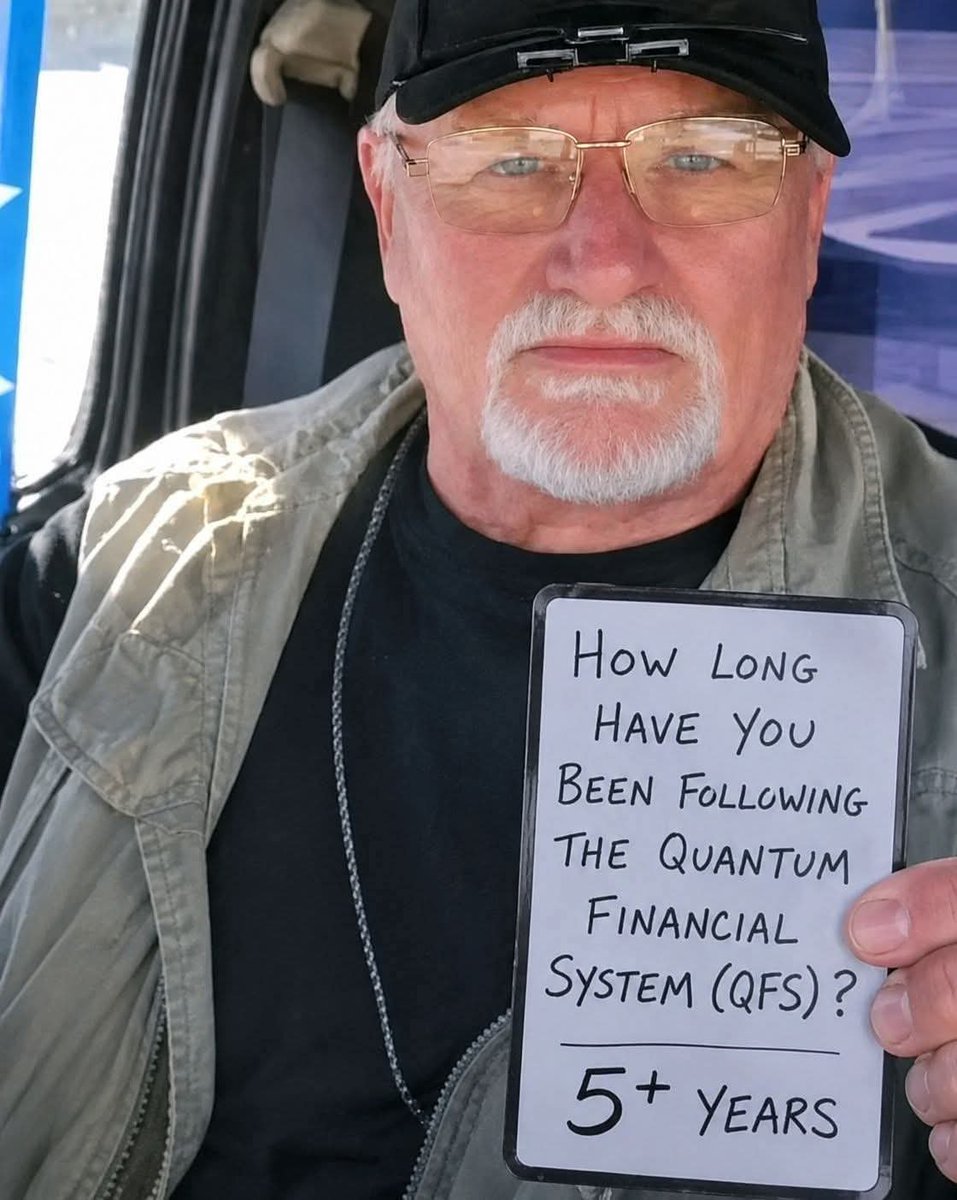 How Long
Have You
Been Following
The Quantum
Financial
System (QFS)?
5+ Years